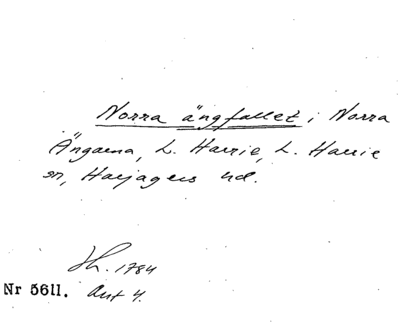 Norra ängfallet i Norra
Ängarna, L. Harrie, L. Harrie
sn, Harjagers hd.
Sk. 1784
Nr 5611. Akt 4.